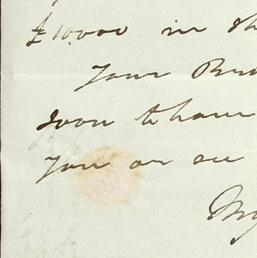 £10000 in sh
Your Br
soon to have
you or see
My